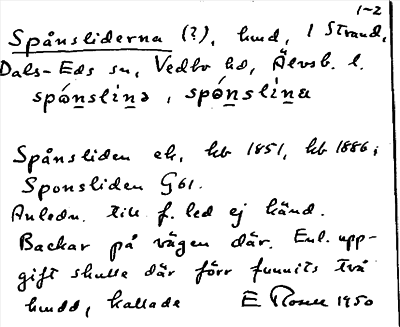 1-2
Spånsliderna (?), hmd, i Strand,
Dals-Eds sn, Vedbo hd, Älvsb. l.
spónslinə, spónslina
Spånsliden ek, kb 1851, kb 1886;
Sponsliden G61.
Anledn. till f. led ej känd.
Backar på vägen där. Enl. upp-
gift skulle där förr funnits två
hmdd, kallade E Rosell 1950